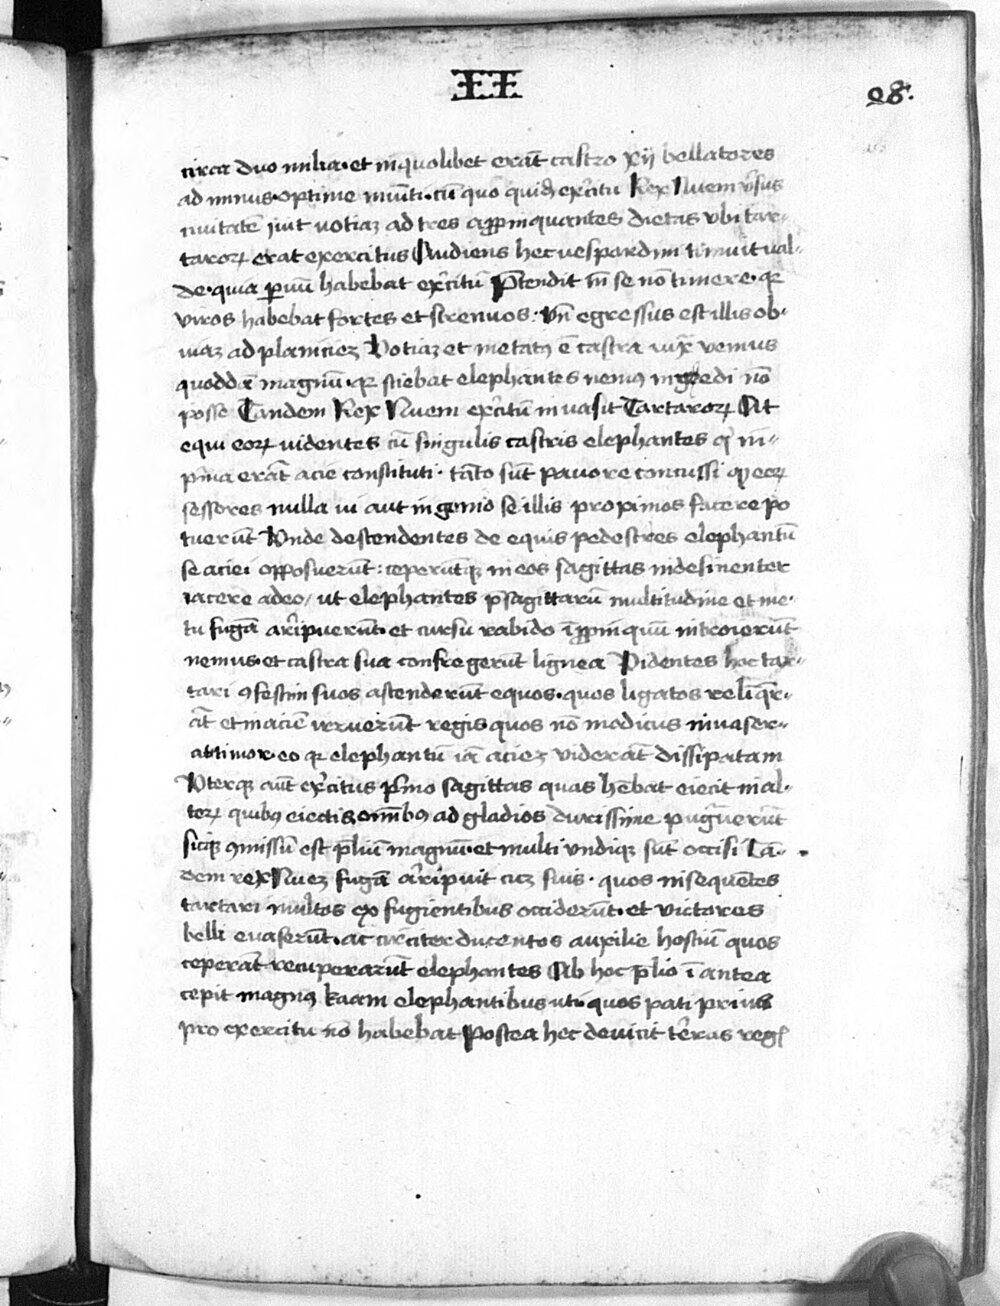 II
98.
circa duo milia · et in quolibet erāt castro xij bellatores
ad minus · optime muniti · cū quo quidē exercitu Rex Nuem v̄sus
nuitatē juit votiaz ad tres appinquantes dietas vbi tar-
taroꝝ erat exercitus Audiens hec vespardim timuit val-
de · quia paruū habebat ex̄citū Ptendit tn̄ se nō timere · qr
viros habebat fortes et strenuos · Vn̄ egressus est illis ob-
uiaz ad planiciez Votiaz et metatꝰ ē castra iuxᵃ nemus
quoddā magnū · qr sciebat elephantes nemꝰ ingredi nō
posse Tandem Rex Nuem ex̄citū inuasit Tartaroꝝ At
equi eoꝝ videntes cū singulis castris elephantes qͥ in
pͥma erāt acie constituti · tāto sūt pauore concussi ꝙ eoꝝ
sessores nulla vi aut ingenio se illis propimos facere po
tuerūt Vnde descendentes de equis pedestres elephantū
se aciei opposuerūt : ceperūtqꝫ in eos sagittas indesinenter
iacere adeo / ut elephantes p̄ sagittarū multitudine et me-
tu fugā arͥpuerūt · et cursu rabido ī ppinquū introierūt
nemus · et castra sua confregerūt lignea Videntes hoc tar-
tari ꝯfestim suos ascenderūt equos · quos ligatos reliq̄r-
āt et in aciē irruerūt regis quos nō modicus inuaser-
at timor · eo qr elephantū iā aciez viderāt dissipatam
Vterqꝫ aūt ex̄citus pͥmo sagittas quas hēbat eiecit in al-
teꝝ quibꝰ eiectis om̄ibꝰ ad gladios durissime pugᵃuerūt
sicqꝫ ꝯmissū est p̄liū magnū · et multi vndiqꝫ sūt occisi Tā-
dem rex Nuez fugā arͥpuit cuz suis · quos insequētes
tartari multos ex fugientibus occiderūt · et victores
belli euaserūt · ac circiter ducentos auxilie hostiū quos
ceperāt recuperarūt elephantes Ab hoc p̄lio ī antea
cepit magnꝰ kaam elephantibus uti · quos pati prius
pro exercitu nō habebat Postea hec deuicit tēras reg